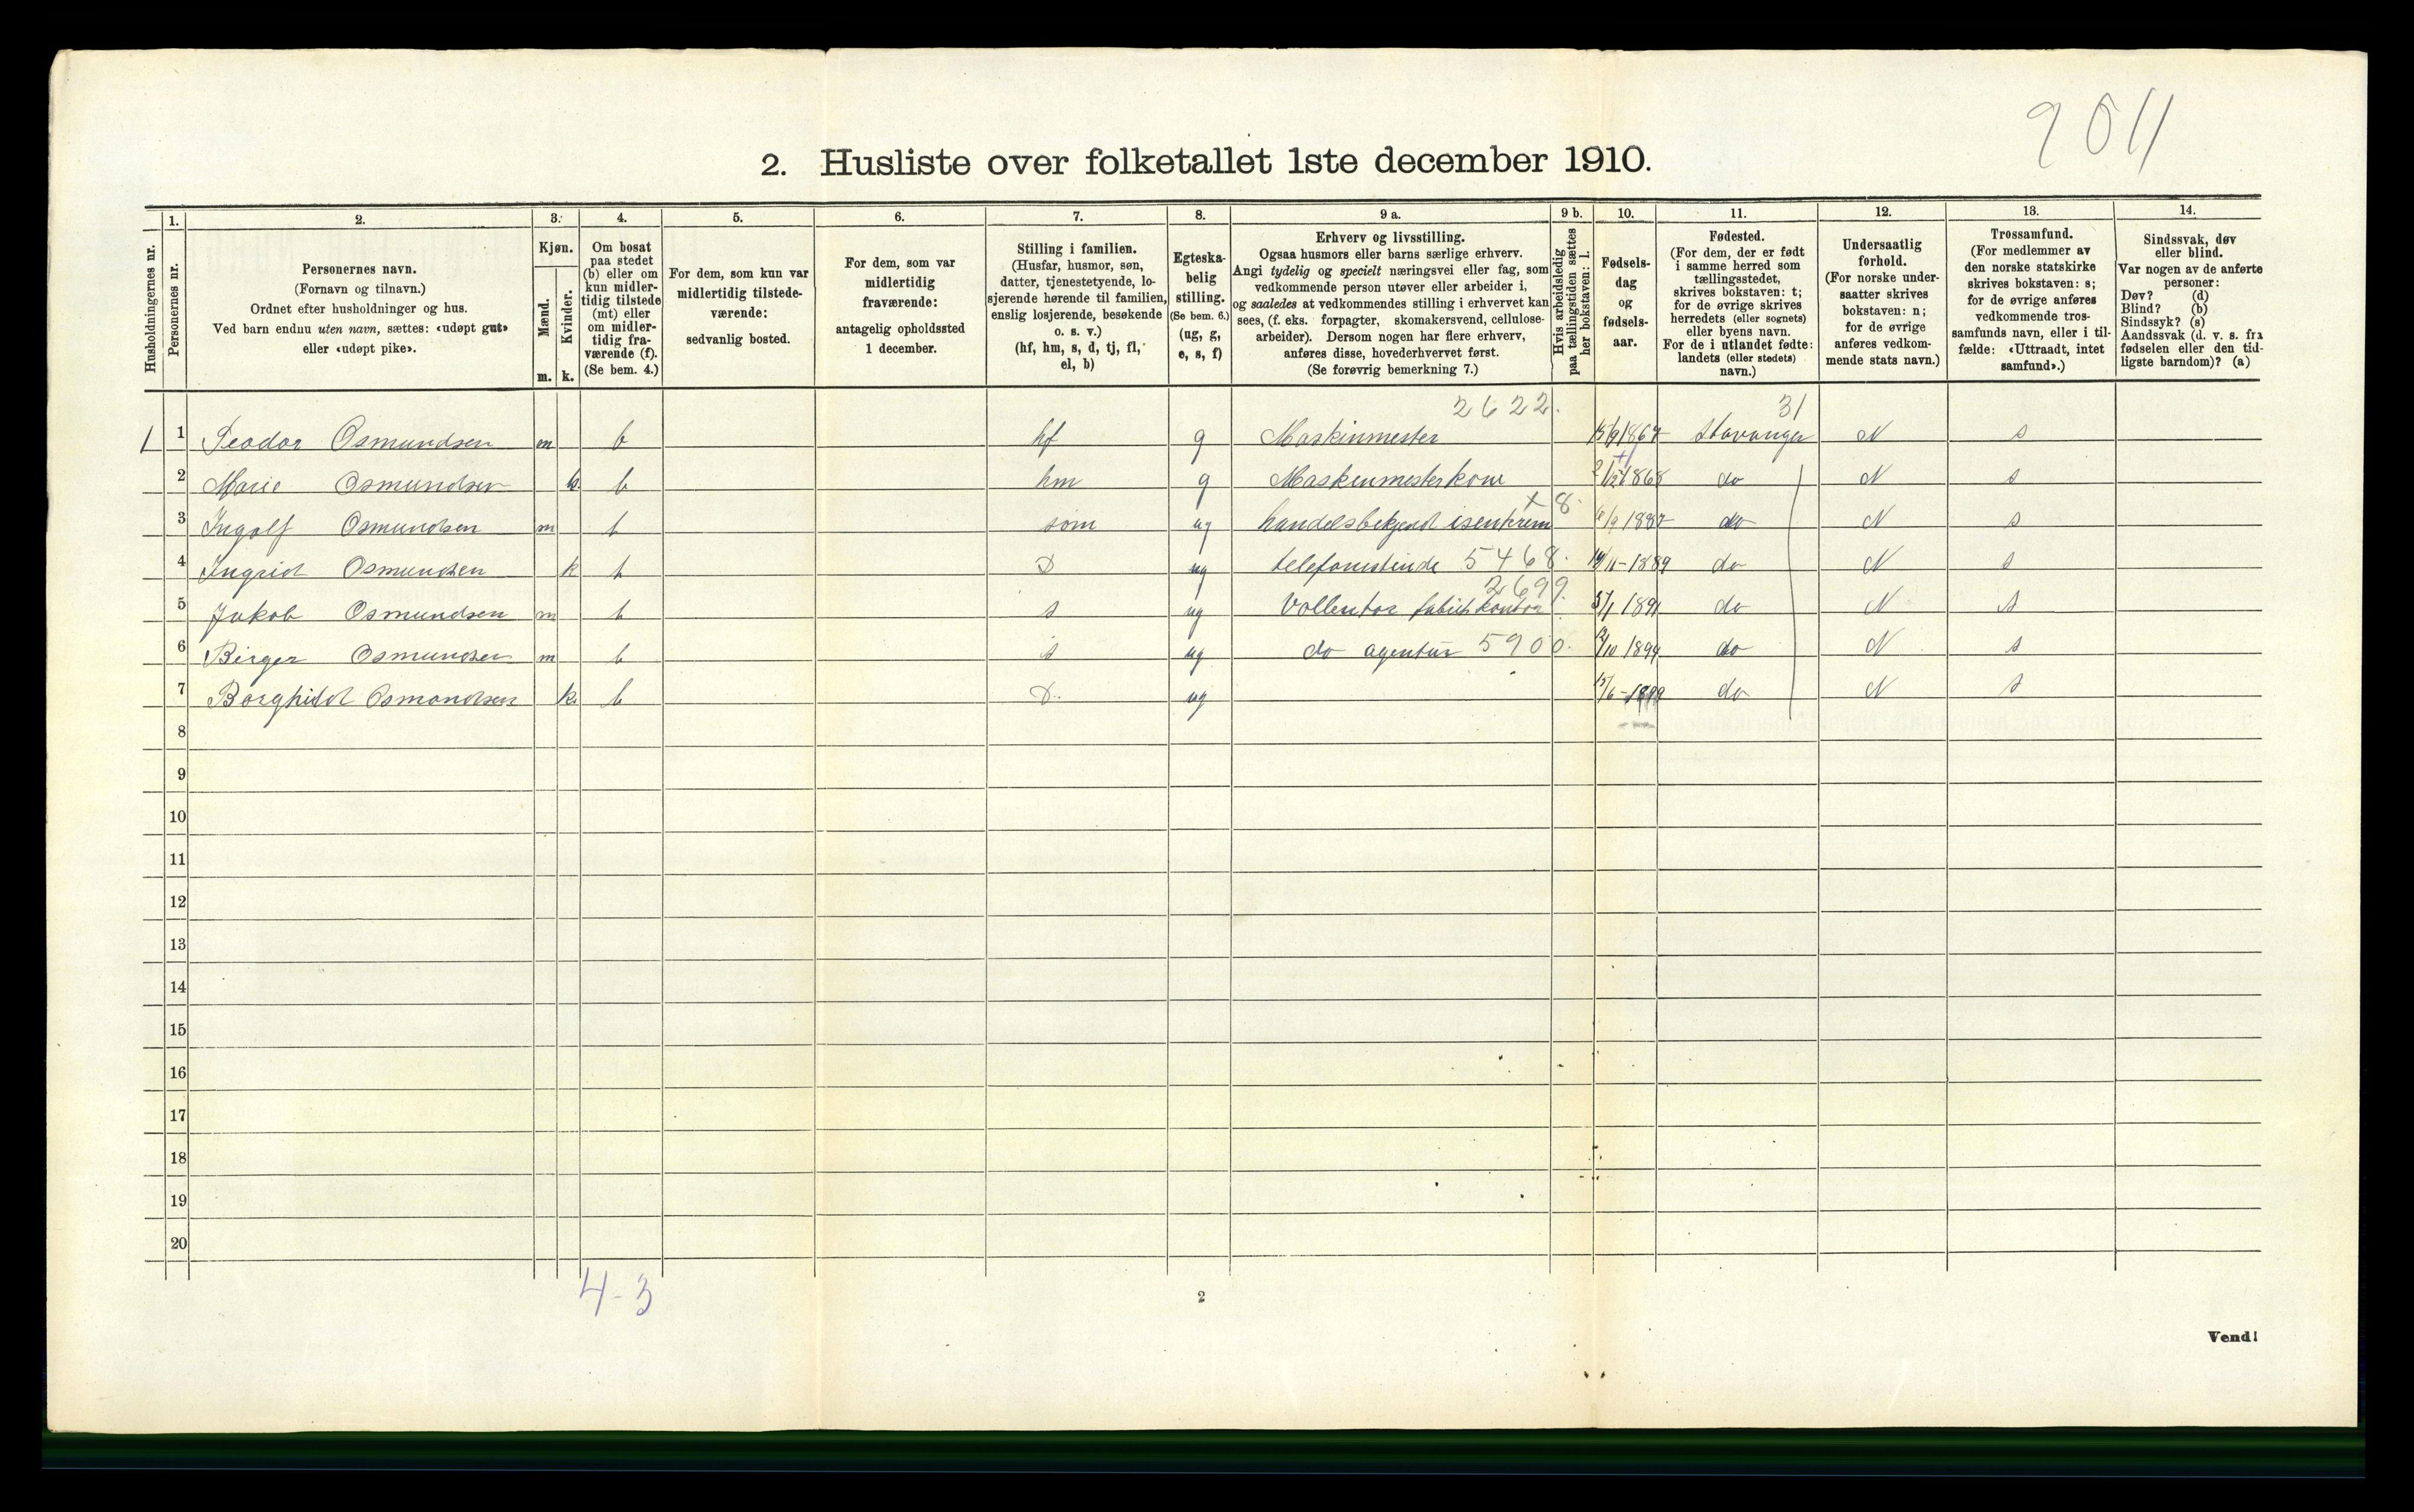 2011
2. Husliste over folketallet 1ste december 1910.
Husholdningernes nr.
1.
Personernes nr.
2.
Personernes navn.
(Fornavn og tilnavn.)
Ordnet efter husholdninger og hus.
Ved barn endnu uten navn, sættes: «udøpt gut»
eller «udøpt pike».
3.
Kjøn.
Mænd.
m.
Kvinder.
k.
4.
Om bosat
paa stedet
(b) eller om
kun midler-
tidig tilstede
(mt) eller
om midler-
tidig fra-
værende (f).
(Se bem. 4.)
5.
For dem, som kun var
midlertidig tilstede-
værende:
sedvanlig bosted.
6.
For dem, som var
midlertidig
fraværende:
antagelig opholdssted
1 december.
7.
Stilling i familien.
(Husfar, husmor, søn,
datter, tjenestetyende, lo-
sjerende hørende til familien,
enslig losjerende, besøkende
o. s. v.)
(hf, hm, s, d, tj, fl,
el, b)
8.
Egteska-
belig
stilling.
(Se bem. 6.)
(ug, g,
e, s, f)
9 a.
Erhverv og livsstilling.
Ogsaa husmors eller barns særlige erhverv.
Angi tydelig og specielt næringsvei eller fag, som
vedkommende person utøver eller arbeider i,
og saaledes at vedkommendes stilling i erhvervet kan
sees, (f. eks. forpagter, skomakersvend, cellulose-
arbeider). Dersom nogen har flere erhverv,
anføres disse, hovederhvervet først.
(Se forøvrig bemerkning 7.)
9 b.
Hvis arbeidsledig
paa tællingstiden sættes
her bokstaven: l.
10.
Fødsels-
dag
og
fødsels-
aar.
11.
Fødested.
(For dem, der er født
i samme herred som
tællingsstedet,
skrives bokstaven: t;
for de øvrige skrives
herredets (eller sognets)
eller byens navn.
For de i utlandet fødte:
landets (eller stedets)
navn.)
12.
Undersaatlig
forhold.
(For norske under-
saatter skrives
bokstaven: n;
for de øvrige
anføres vedkom-
mende stats navn.)
13.
Trossamfund.
(For medlemmer av
den norske statskirke
skrives bokstaven: s;
for de øvrige anføres
vedkommende tros-
samfunds navn, eller i til-
fælde: «Uttraadt, intet
samfund».)
14.
Sindssvak, døv
eller blind.
Var nogen av de anførte
personer:
Døv? (d)
Blind? (b)
Sindssyk? (s)
Aandssvak (d. v. s. fra
fødselen eller den tid-
ligste barndom)? (a)
2622. 31
1 1 Teodor Osmundsen m b hf g Maskinmester 15/9 1867 Stavanger N s
2 Marie Osmundsen k b hm g Maskenmesterkone 1868 do N s
+ 8
3 Ingolf Osmundsen m b søm ug 1887 do N s
4 Ingrid Osmundsen k b D ug telefonistinde 5468. 14/11-1889 do N s
2699.
5 Jakob Osmundsen m b s ug Vollentør fabrikkontor 1891 do N s
6 Birger Osmundsen m b s ug do agentur 5900. 12/10 1894 do N s
7 Borghild Osmondsen k b D. ug 15/6-1899 do N s
8
9
10
11
12
13
14
15
16
17
18
19
20
4-3
2
Vend!